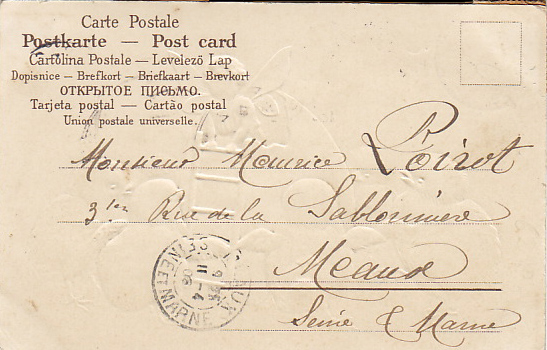 Carte Postale
Postkarte — Post card
Cartolina Postale — Levelező Lap
Dopisnice — Brefkort — Briefkaart — Brevkort
ОТКРЫТОЕ ПИСЬМО.
Tarjeta postal — Cartão postal
Union postale universelle.
Monsieur Maurice Poirot
Rue de la Sablonnière
Meaux
Seine & Marne
SEINE ET MARNE